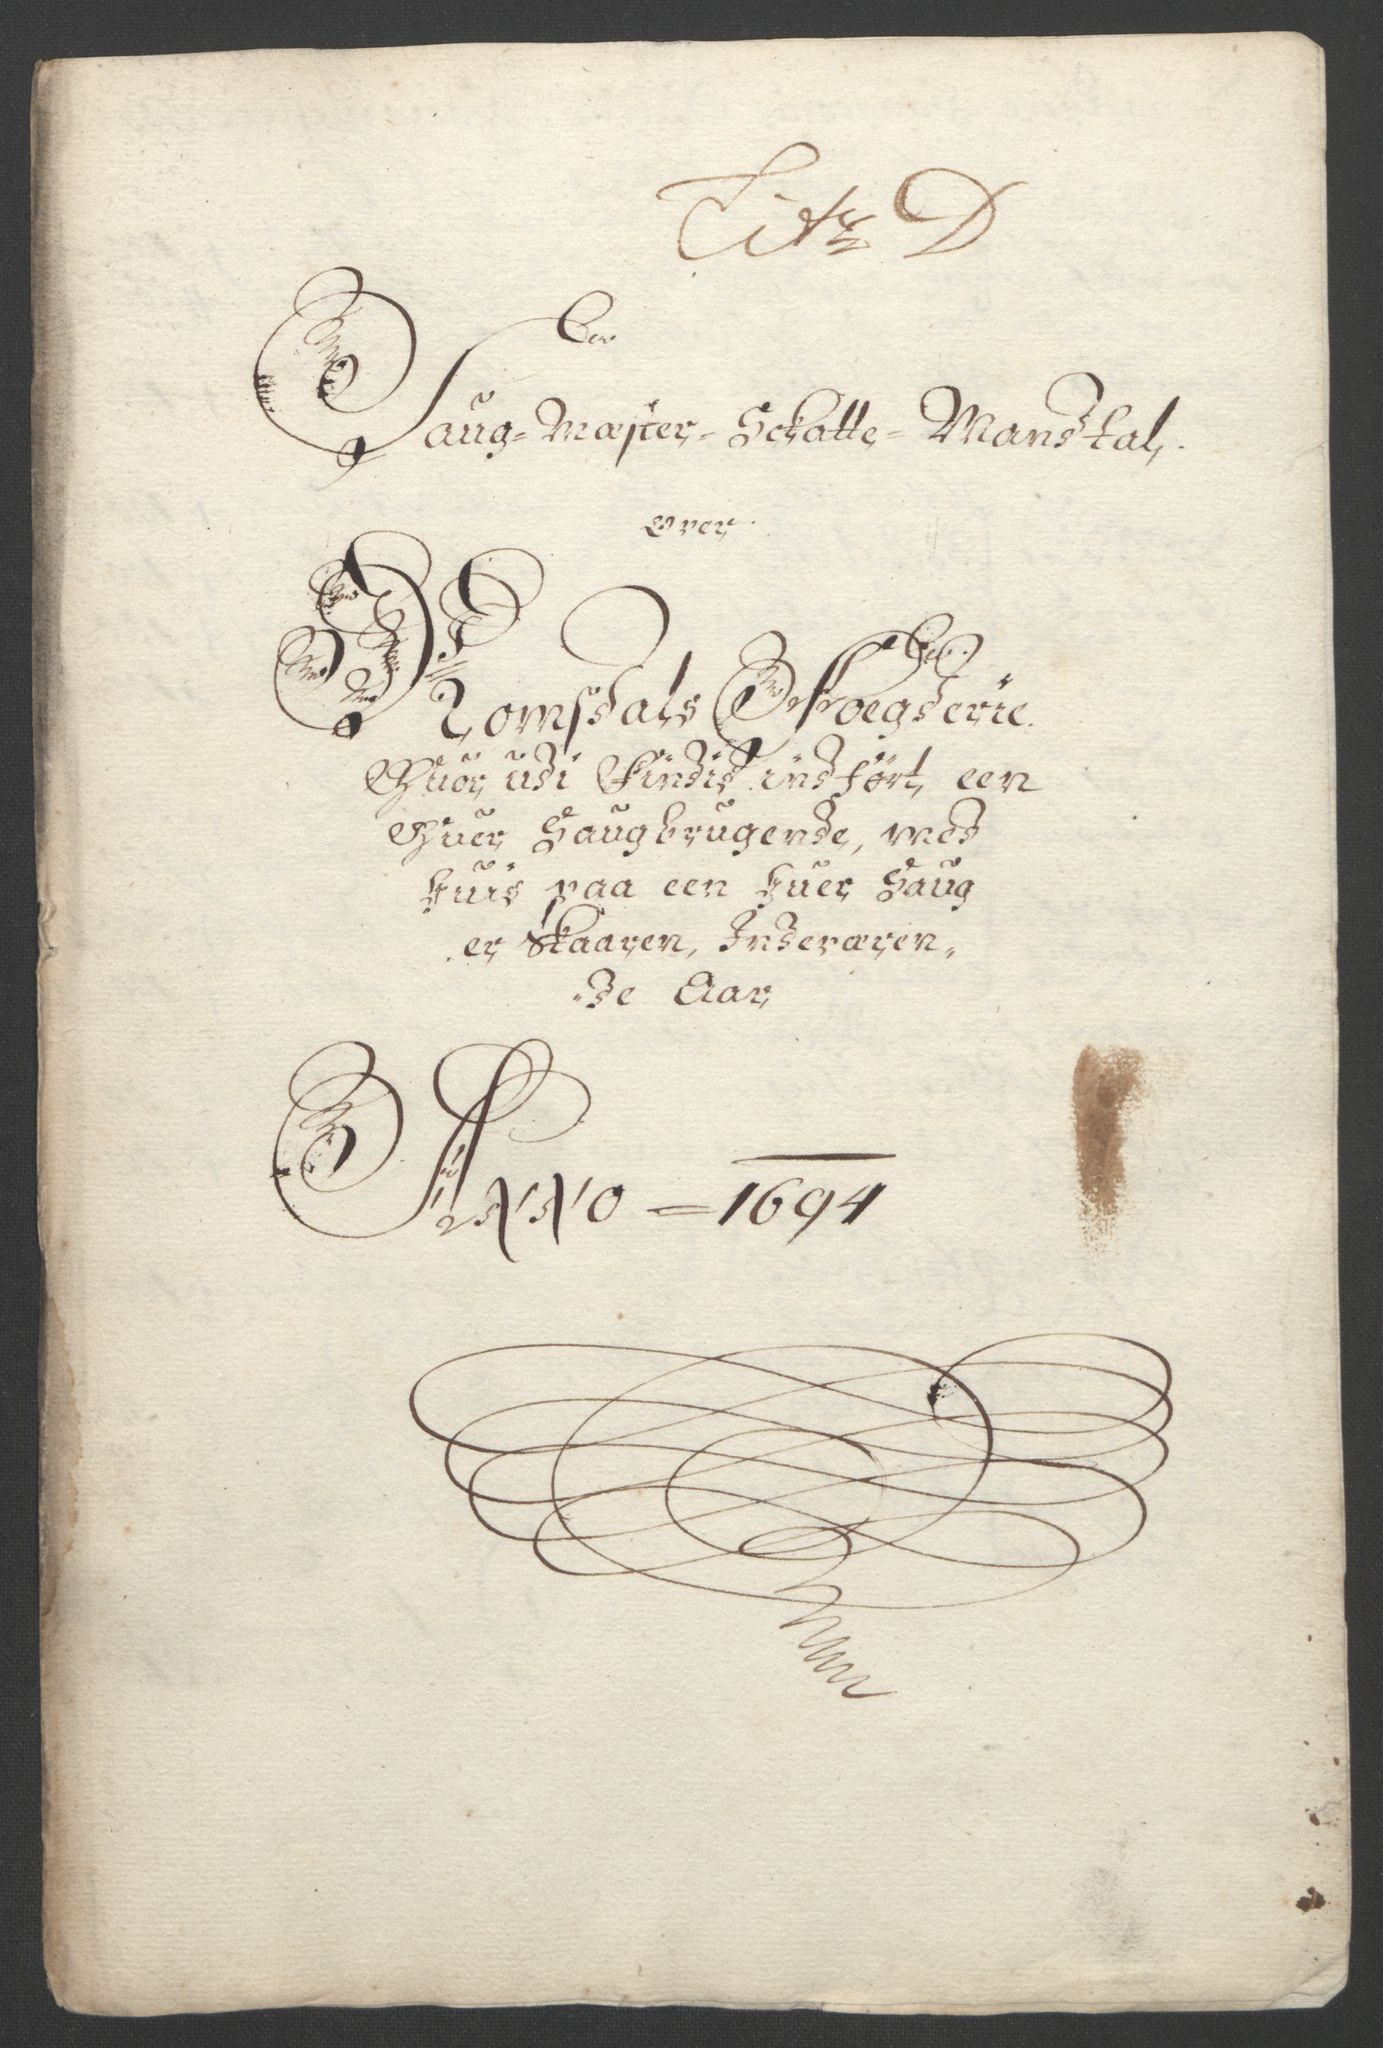 Litr D
Saug-Mæster-Schatte-Mandtal.
over.
Romsdals Foegderie.
Huor udi Findis indført, een
Huer Saugbrugende, med
huis paa een huer Saug
er skaaren, Indeværen-
-de Aar,
ANNO = 1694